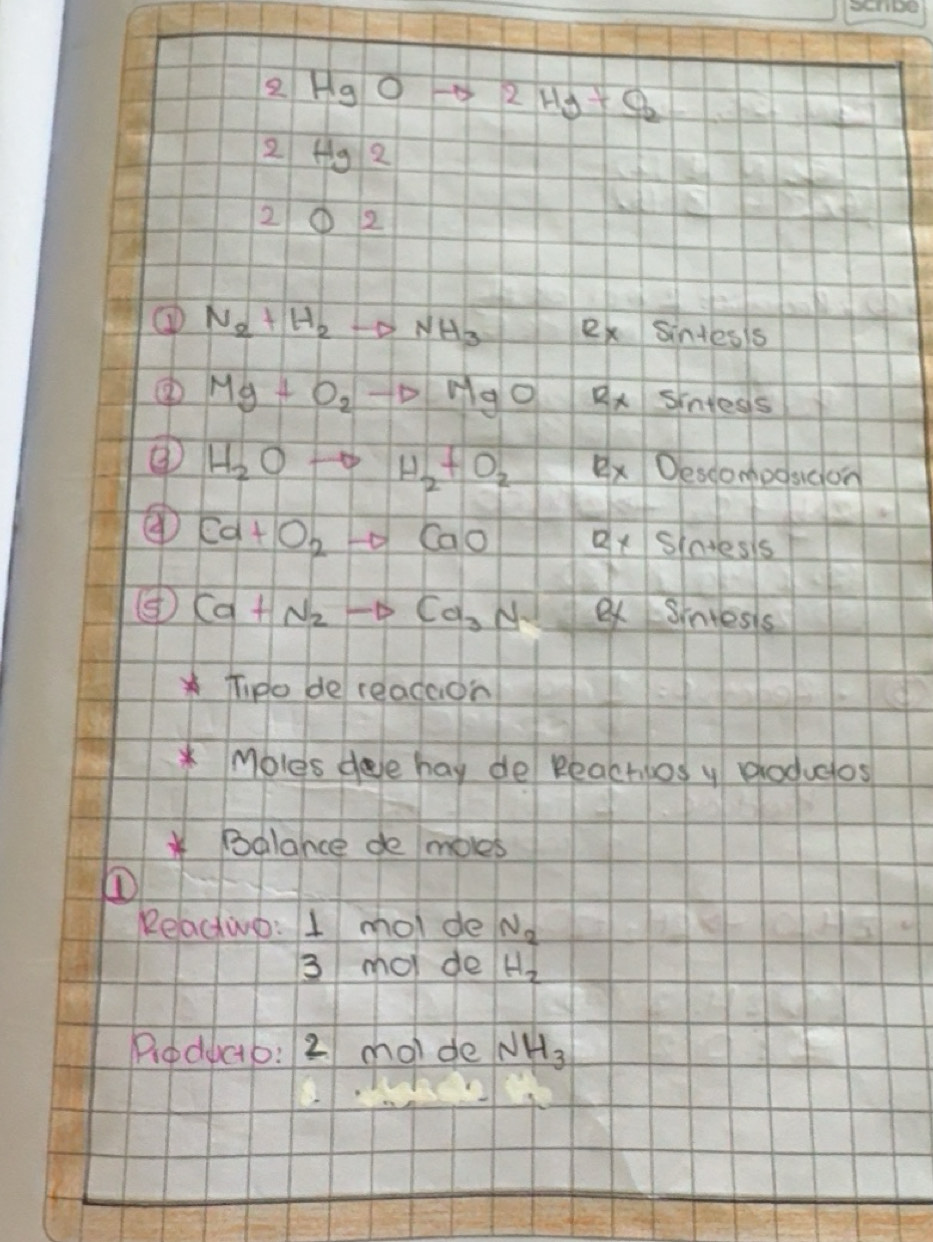 Scribe
2 HgO → 2 Hg + O₂
2 Hg 2
2 O 2
① N₂ + H₂ → NH₃ Rx Sintesis
② Mg + O₂ → MgO Rx Sintesis
③ H₂O → H₂ + O₂ Rx Descomposición
④ Ca + O₂ → CaO Rx Sintesis
⑤ Ca + N₂ → Ca₃N Rx Sintesis
* Tipo de reacción
* Moles que hay de Reactivos y productos
* Balance de moles
①
Reactivo: 1 mol de N₂
3 mol de H₂
Producto: 2 mol de NH₃